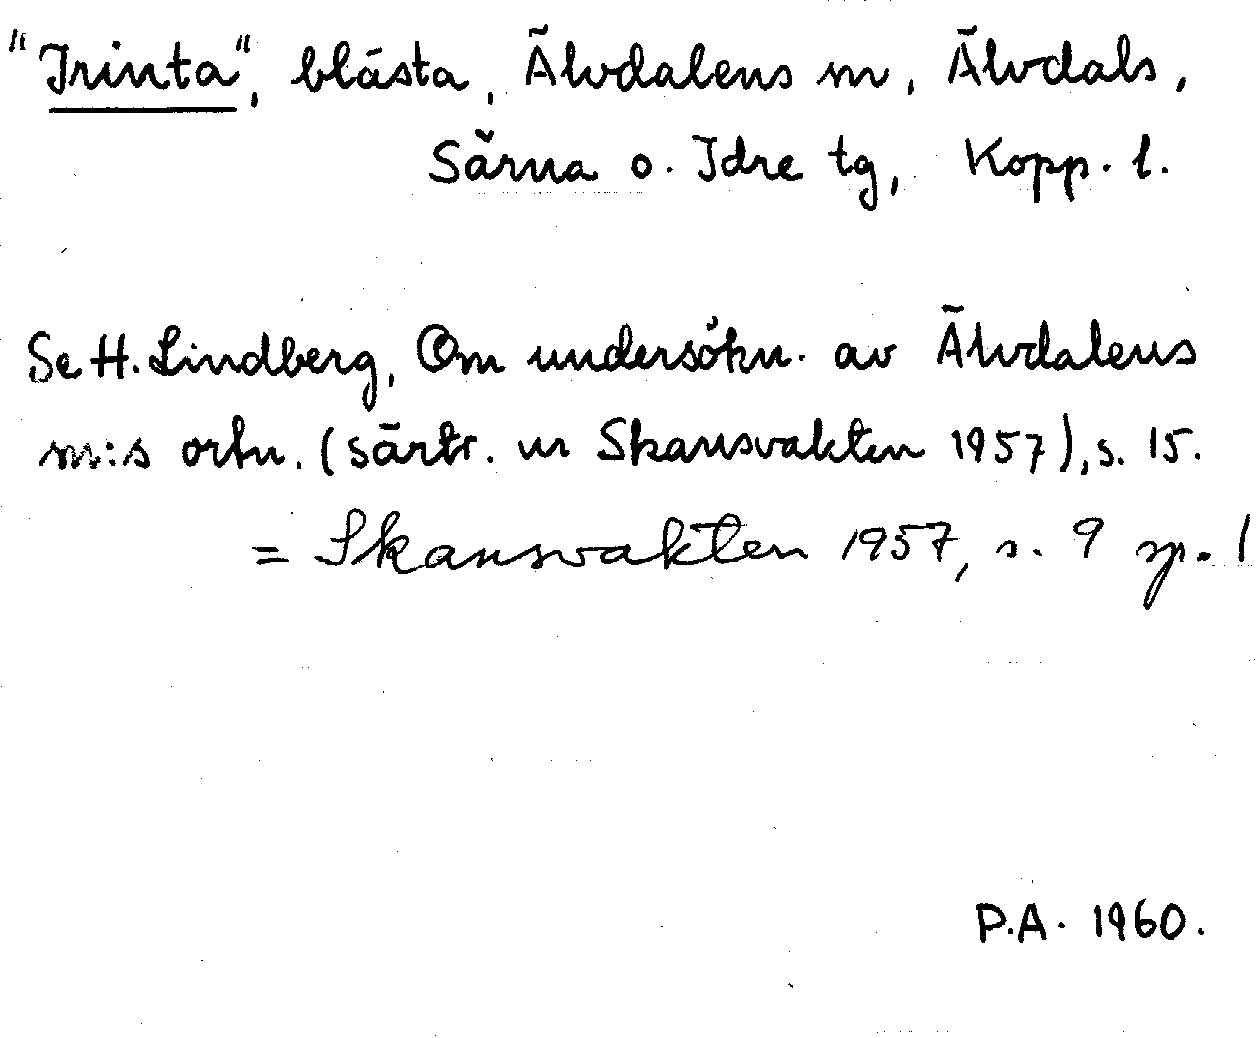 "Trinta", blåsta, Älvdalens m, Älvdals,
Särna o. Idre tg, Kopp. l.
Se H. Lindberg, Om undersökn. av Älvdalens
m:s ortn. (särtr. ur Skansvakten 1957), s. 15.
= Skansvakten 1957, s. 9 sp. 1
P.A. 1960.